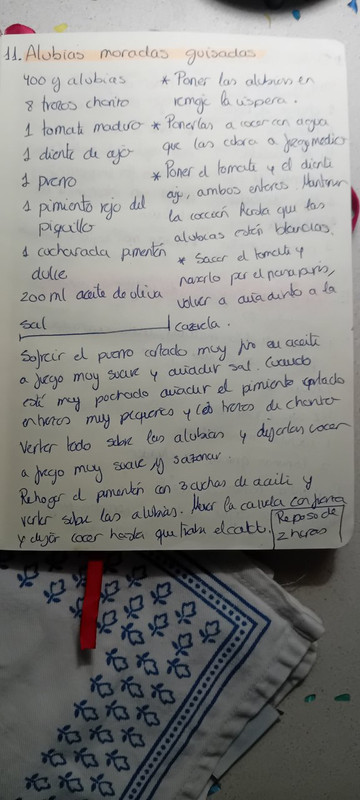 11. Alubias moradas guisadas
400 g alubias
8 trozos chorizo
1 tomate maduro
1 diente de ajo
1 puerro
1 pimiento rojo del
piquillo
1 cucharada pimentón
dulce
200 ml aceite de oliva
sal
* Poner las alubias en
remojo la víspera.
* Ponerlas a cocer con agua
que las cubra a fuego medio
* Poner el tomate y el diente
ajo, ambos enteros. Mantener
la cocción hasta que las
alubias estén blandas.
* Sacar el tomate y
pasarlo por el pasapurés,
volver a añadirlo a la
cazuela.
Sofreir el puerro cortado muy fino en aceite
a fuego muy suave y añadir sal. Cuando
esté muy pochado añadir el pimiento cortado
en trozos muy pequeños y los trozos de chorizo
Verter todo sobre las alubias y dejarlas cocer
a fuego muy suave y sazonar.
Rehogar el pimentón con 3 cucha de aceite y
verter sobre las alubias. Mover la cazuela con
y dejar cocer hasta que trabe el caldo.
Reposo de
2 horas